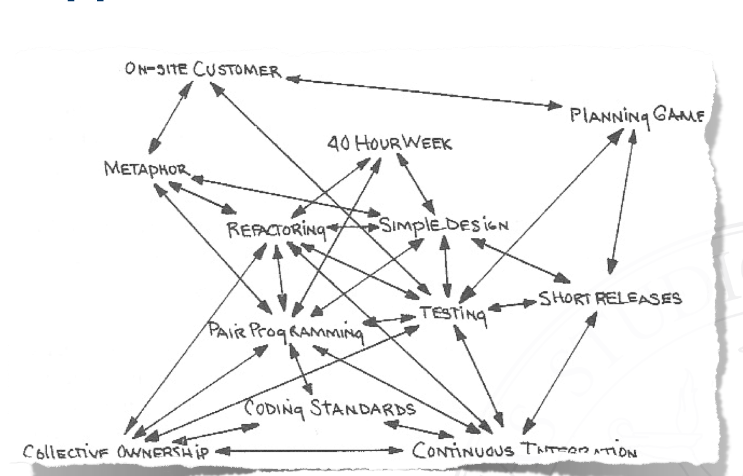 ON-SITE CUSTOMER
PLANNING GAME
40 HOUR WEEK
METAPHOR
REFACTORING
SIMPLE DESIGN
SHORT RELEASES
TESTING
PAIR PROGRAMMING
CODING STANDARDS
COLLECTIVE OWNERSHIP
CONTINUOUS INTEGRATION